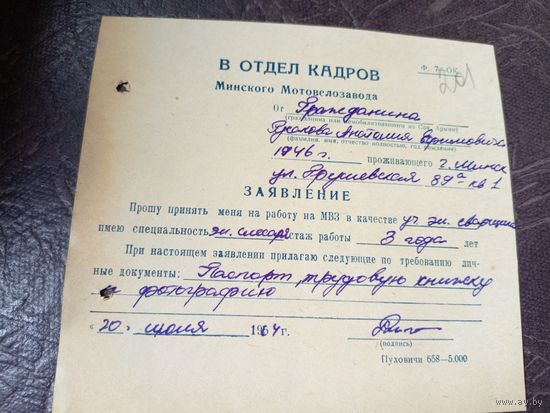 Ф. 7-ОК
201
В ОТДЕЛ КАДРОВ
Минского Мотовелозавода
От Гражданина
(гражданина или демобилизованного из Сов. Армии)
Анатолия Ефимовича
(фамилия, имя, отчество полностью, год рождения)
1946 г. проживающего г. Минск
ул. Грушевская 89а кв 1
ЗАЯВЛЕНИЕ
Прошу принять меня на работу на МВЗ в качестве уч. эл. сварщика
имею специальность эл. слесаря стаж работы 3 года лет
При настоящем заявлении прилагаю следующие по требованию лич-
ные документы: Паспорт, трудовую книжку
и фотографию
«20» июля 1964 г.
(подпись)
Пуховичи 658—5.000
www.ay.by